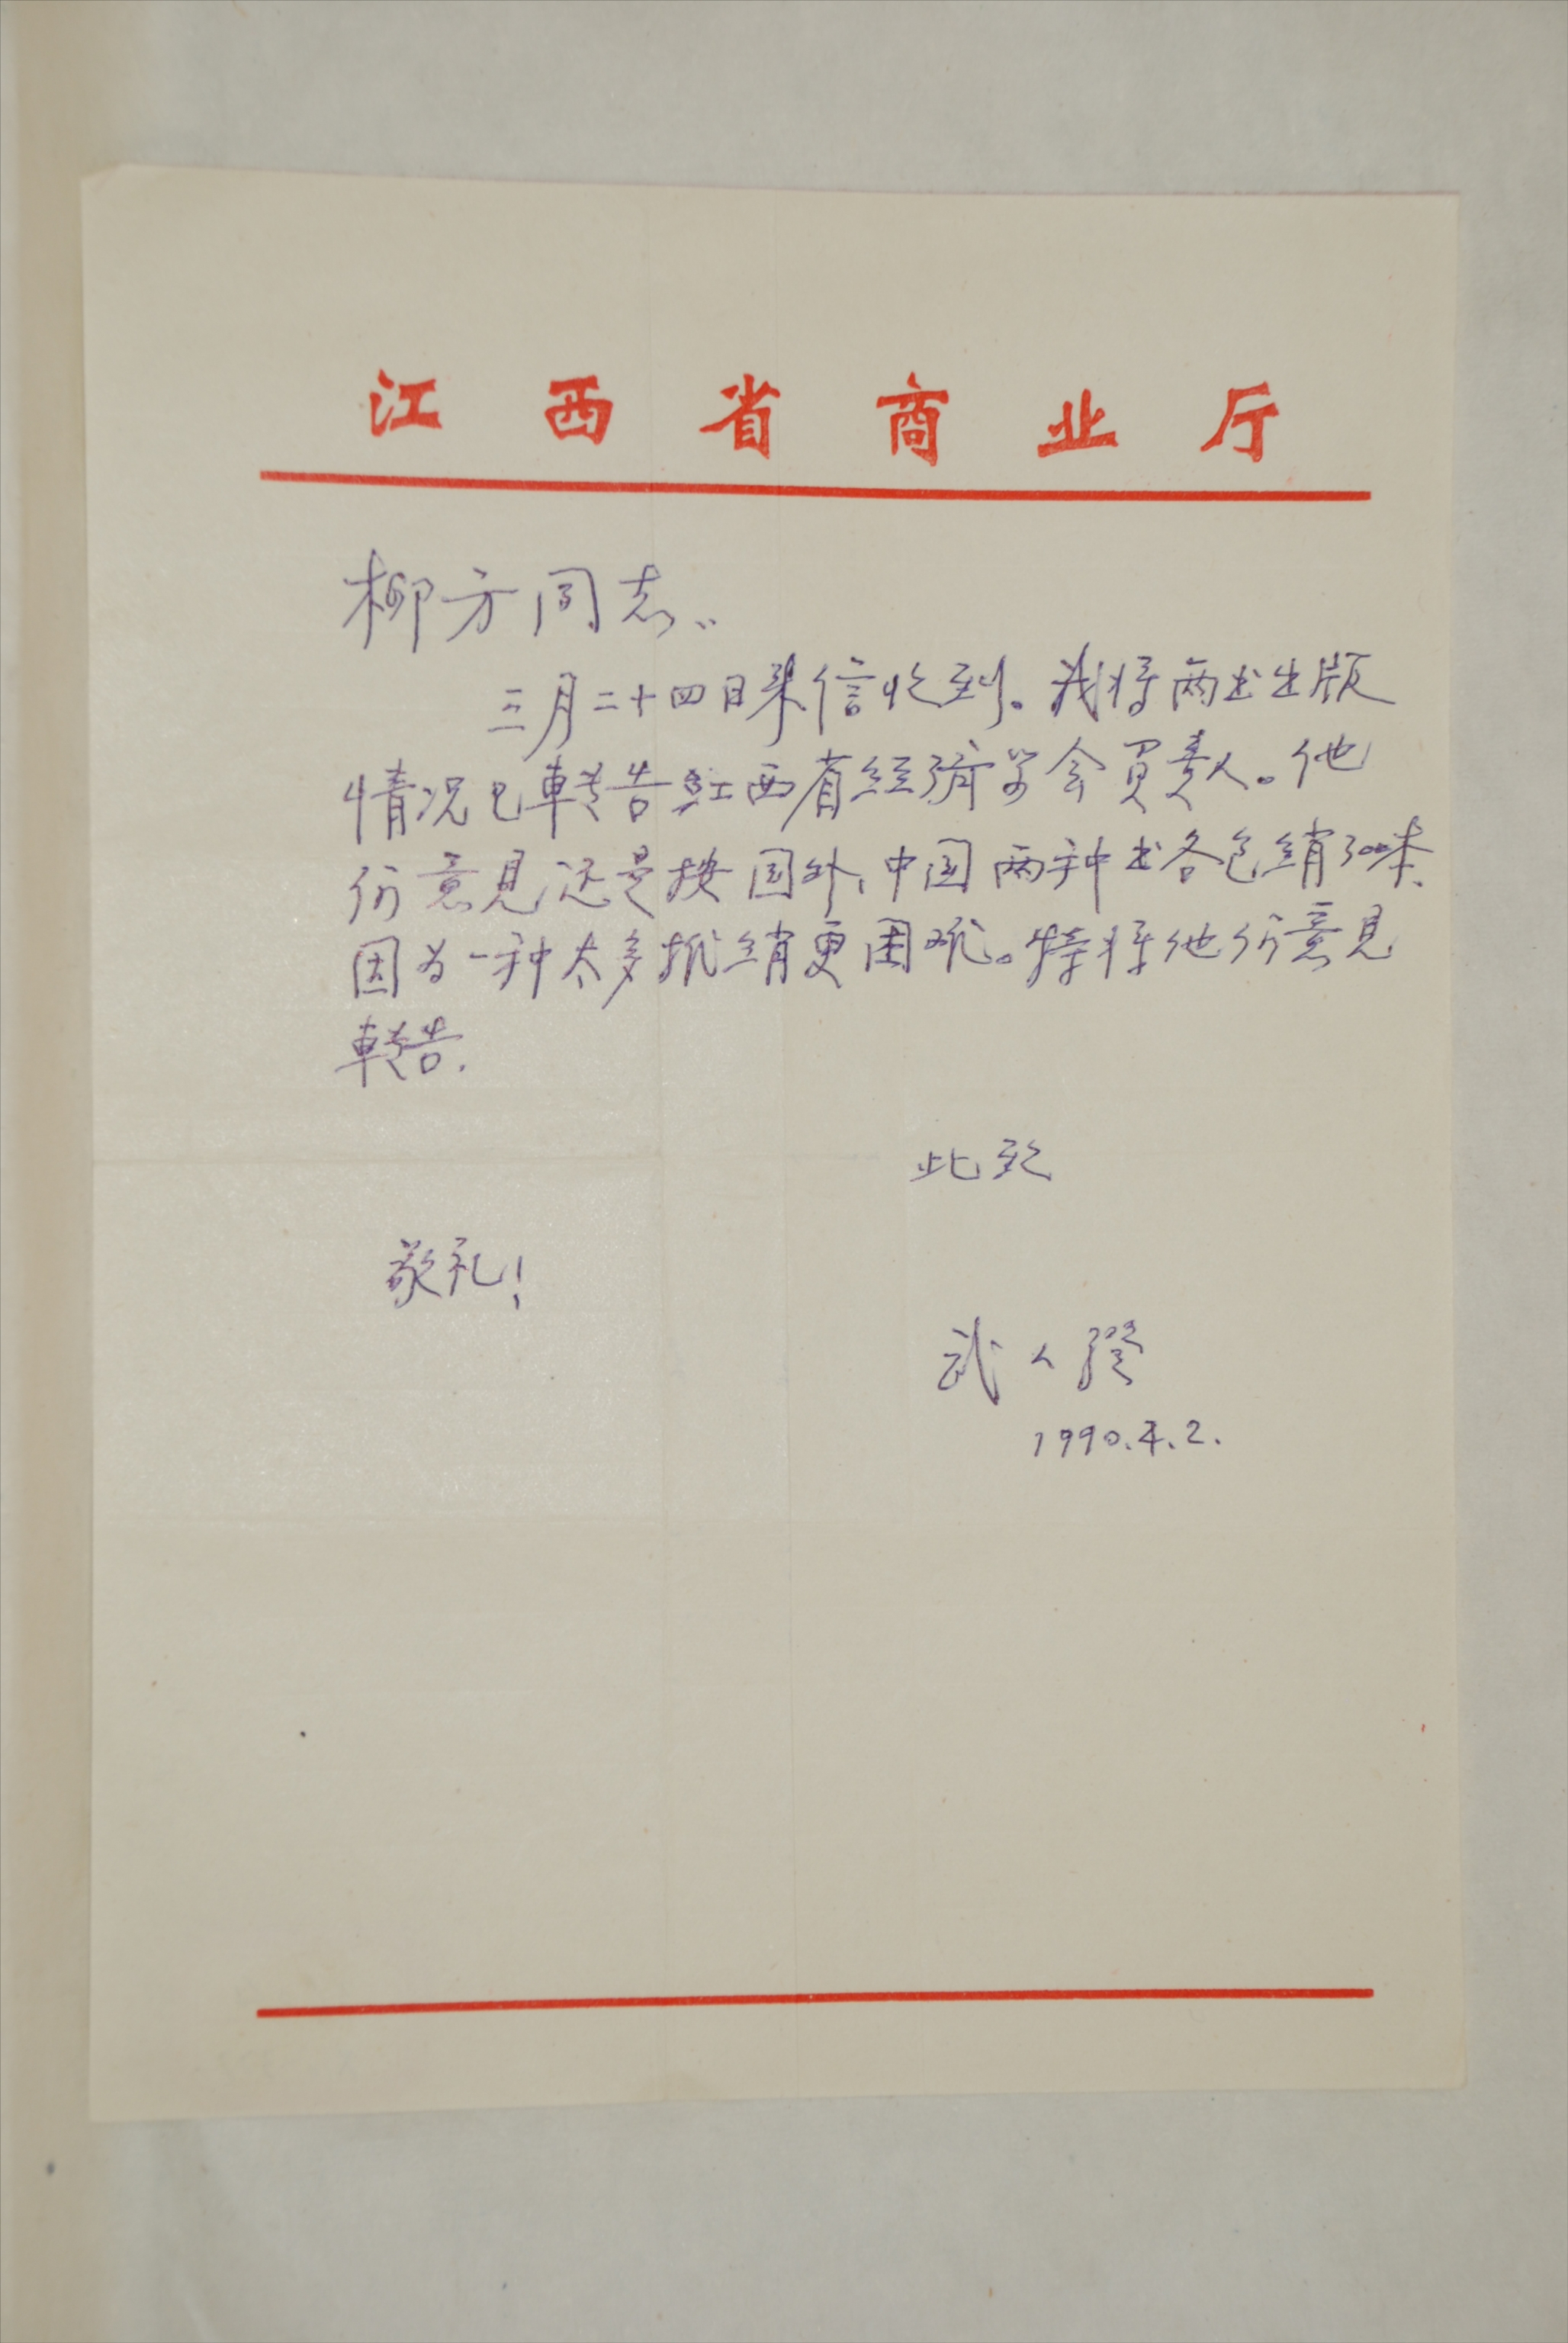 江西省商业厅
柳方同志:
三月二十四日来信收到。我将两书出版
情况已转告江西省经济学会负责人。他
们意见还是按国外、中国两种书各包销300本、
因为一种太多推销更困难。特将他们意见
转告.
此致
敬礼!
武
1990.4.2.